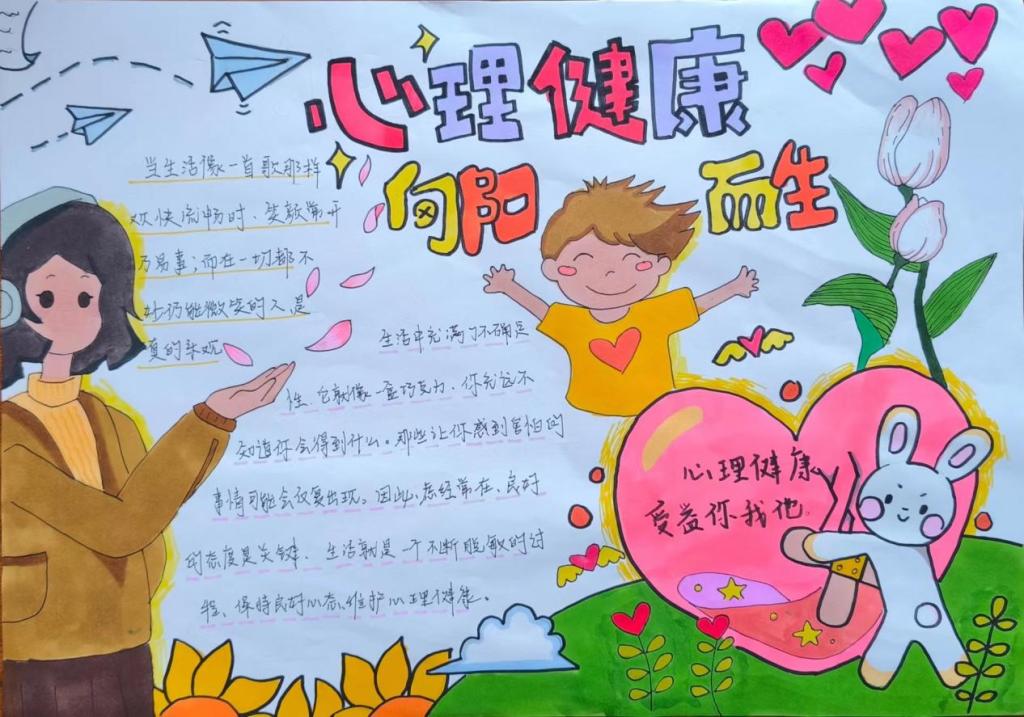 心理健康
向阳而生
当生活像一首歌那样
欢快流畅时、笑颜常开
乃易事；而在一切都不
妙仍能微笑的人是
真的乐观
生活中充满了不确定
性、它就像一盒巧克力、你永远不
知道你会得到什么。那些让你感到害怕的
事情可能会反复出现。因此、态经常在、良好
的态度是关键、生活就是一个不断脱敏的过
程、保持良好心态维护心理健康。
心理健康
受益你我他